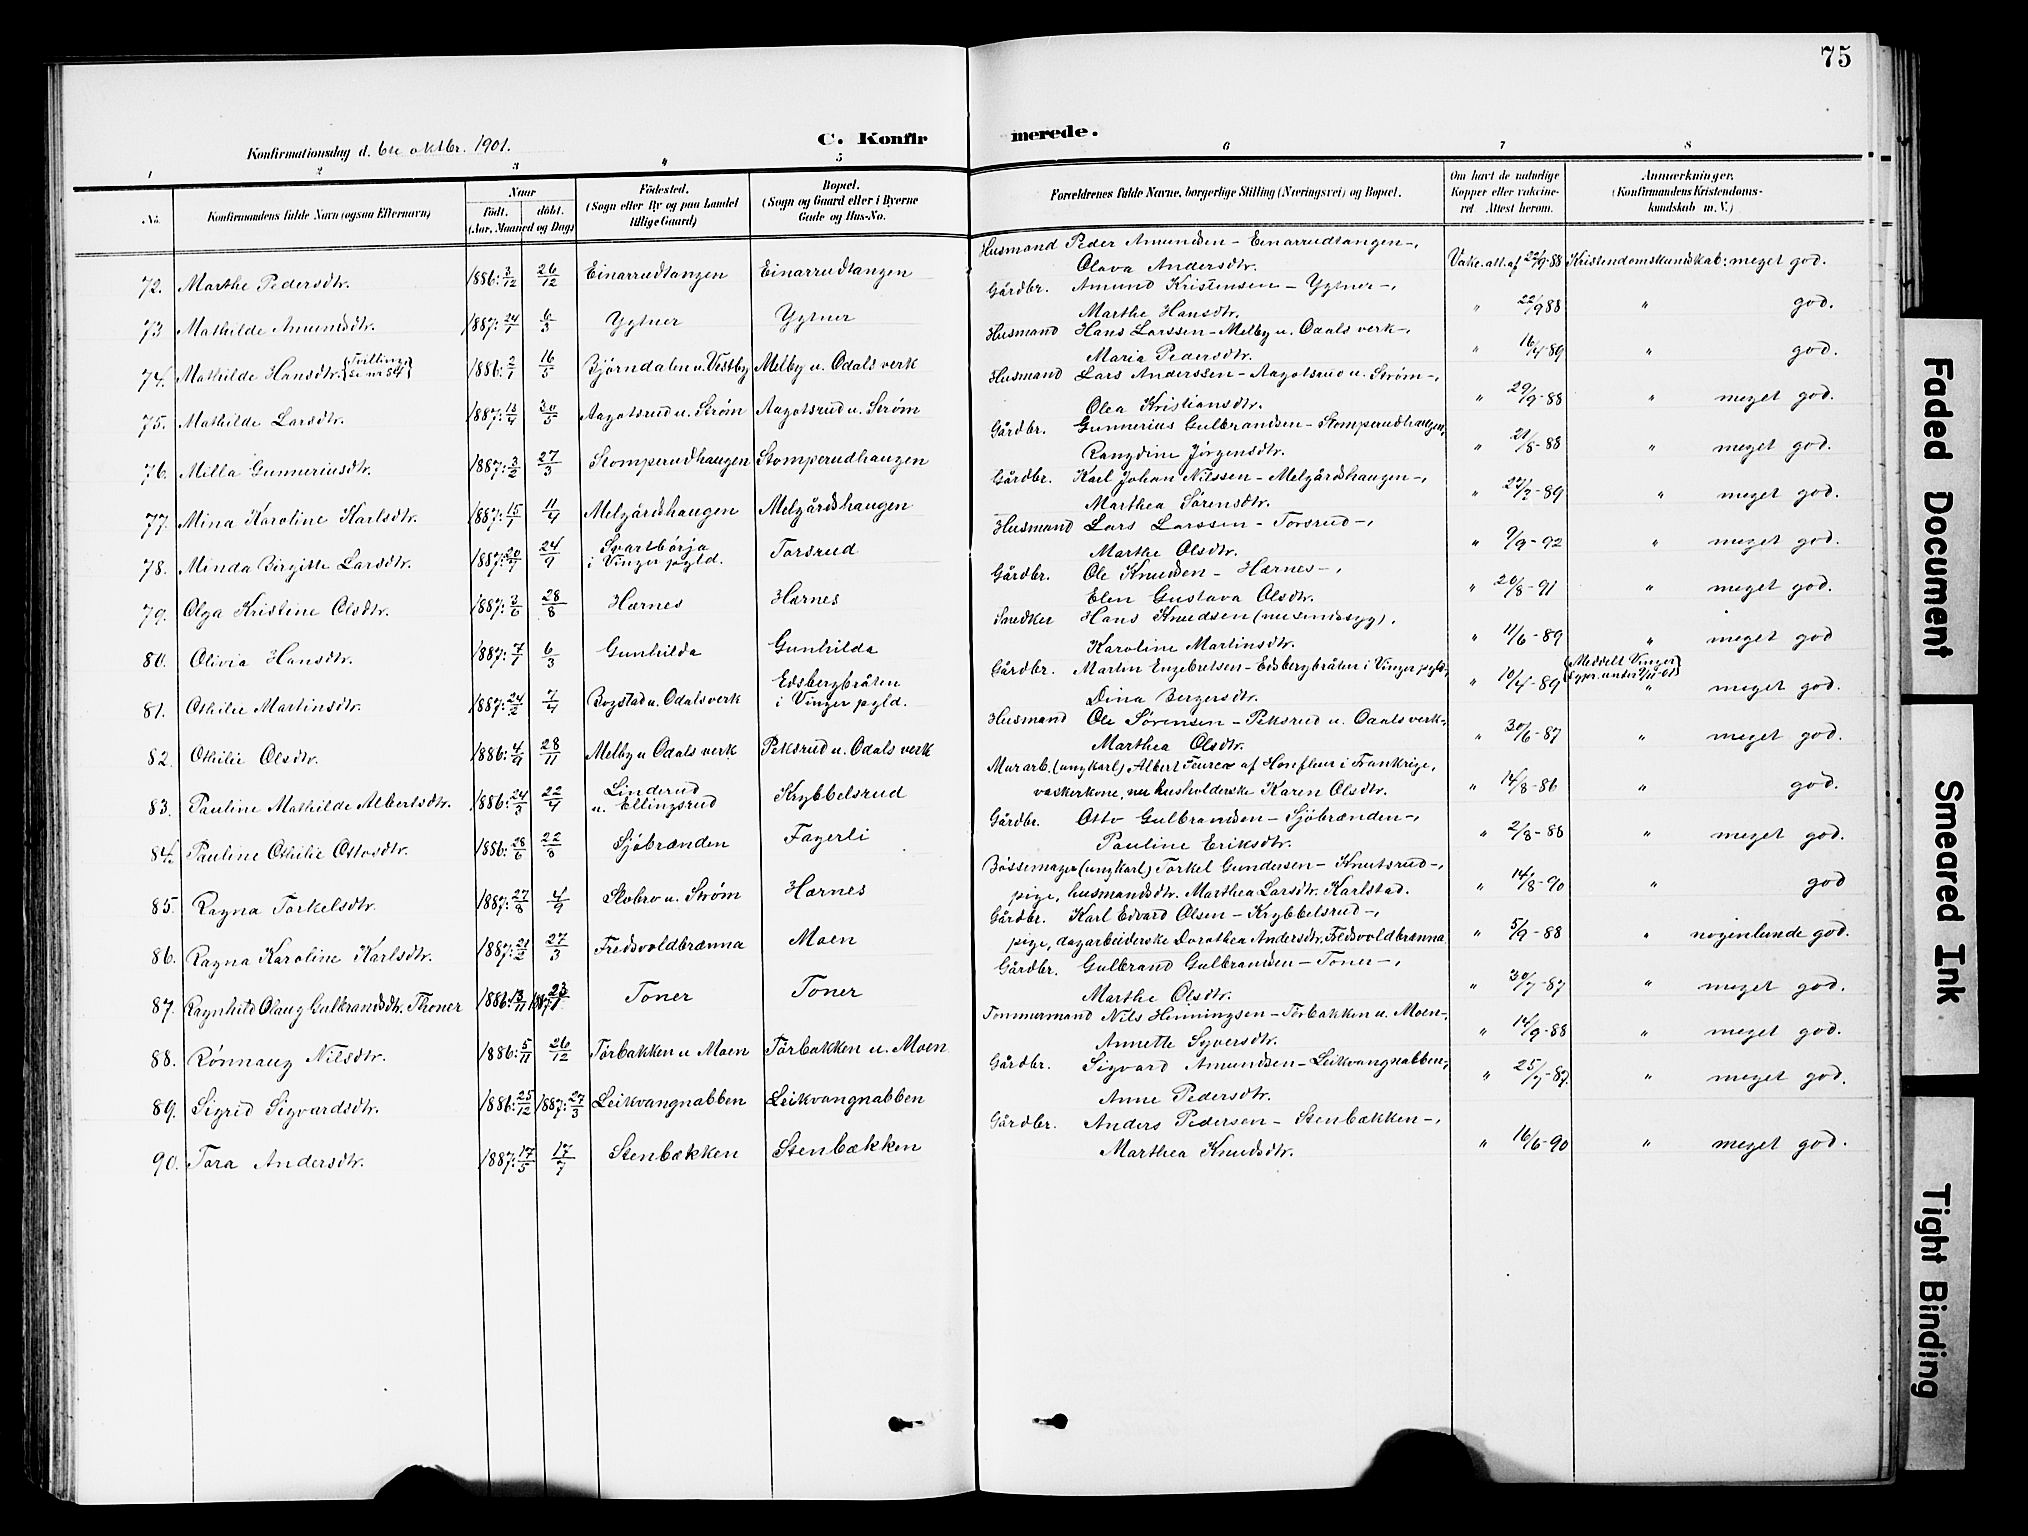 75
Konfirmationsdag d. 6te oktbr. 1901.
C. Konfirmerede.
1 2 3 4 5 6 7 8
No. Konfirmandens fulde Navn (ogsaa Efternavn)
Naar födt. döbt. (Aar, Maaned og Dag)
Födested. (Sogn eller By og paa Landet tillige Gaard)
Bopæl. (Sogn og Gaard eller i Byerne Gade og Hus-No.
Forældrenes fulde Navne, borgerlige Stilling (Næringsvei) og Bopæl.
Om havt de naturlige Kopper eller vakcineret Attest herom.
Anmærkninger. (Konfirmandens Kristendomskundskab m.V.)
72. Marthe Pedersdtr. 1886: 3/12 26/12 Einarrudtangen Einarrudtangen Husmand Peder Amundsen - Einarrudtangen -, Olava Andersdtr. Vakc. att. af 22/9-88 Kristendomskundskab: meget god.
73 Mathilde Amundsdtr. 1887: 24/1 6/3 Ygtner Ygtner Gårdbr. Amund Kristensen - Ygtner -, Marthe Hansdtr. " 22/9 88 " god.
74. Mathilde Hansdtr. (Tvilling se nr 54) 1886: 2/1 16/5 Bjørndalen u. Vestby Melby u. Odals verk Husmand Hans Larssen - Melby u. Odals verk -, Maria Pedersdtr. " 16/4-89 " god.
75. Mathilde Larsdtr. 1887: 13/4 30/5 Aagotsrud u. Strøm Aagotsrud u. Strøm Husmand Lars Anderssen - Aagotsrud u. Strøm -, Olea Kristiansdtr. " 29/9-88 " meget god.
76. Milla Gunneriusdtr. 1887: 3/2 27/3 Stomperudhaugen Stomperudhaugen Gårdbr. Gunnerius Gulbrandsen - Stomperudhaugen, Rangdine Jörgensdtr. " 21/8-88 " meget god.
77. Mina Karoline Karlsdtr. 1887: 15/1 11/4 Melgårdshaugen Melgårdshaugen Gårdbr. Karl Johan Nilssen - Melgårdshaugen -, Marthea Sörensdtr. " 22/7-89 " meget god.
78. Minda Birgitte Larsdtr. 1887: 20/7 24/9 Svartbørja i Vinger pgld. Torsrud Husmand Lars Larssen - Torsrud -, Marthe Olsdtr. " 9/9-92 " meget god.
79. Olga Kristine Olsdtr. 1887: 3/6 28/8 Hærnes Hærnes Gårdbr. Ole Knudsen - Hærnes -, Elen Gustava Olsdtr. " 20/8-91 " meget god.
80. Olivia Hansdtr. 1887: 7/1 6/3 Gunhilda Gunhilda Snedker Hans Knudsen (nu sindssyg), Karoline Martinsdtr. " 11/6-89 " meget god
81. Othilie Martinsdtr. 1887: 24/2 7/4 Bogstad u. Odalsverk Edsbergbråten i Vinger pgld. Gårdbr. Martin Engebretsen - Edsbergbråten i Vinger pgld, Dina Bergersdtr. " 10/4-89 (Meddelt Vinger) " meget god.
82. Othilie Olsdtr. 1886: 4/9 28/11 Melby u Odals verk Peksrud u. Odals verk Husmand Ole Sørensen - Peksrud u. Odals verk -, Marthea Olsdtr. " 30/6-87 " meget god.
83. Pauline Mathilde Albertsdtr. 1886: 24/3 22/4 Linderud u. Ellingsrud Krybbelsrud Murarb. (ungkarl) Albert af Honfleur i Frankrige, vaskerkone, nu husholderske Karen Olsdtr. " 14/8-86 " god.
84. Pauline Othilie Ottosdtr. 1886: 28/6 22/8 Sjöbrænden Fagerli Gårdbr. Otto Gulbrandsen - Sjöbrænden -, Pauline Eriksdtr. " 2/8-88 " meget god.
85. Ragna Torkelsdtr. 1887: 27/8 4/9 Slobro u. Strøm Hærnes Bössemager (ungkarl) Torkel Gundersen - Knutsrud -, pige, husmandsdtr. Marthea Larsdtr. Karlstad. " 14/8-90 " god
86. Ragna Karoline Karlsdtr. 1887: 21/2 27/3 Fredsvoldbrænna Moen Gårdbr. Karl Edvard Olsen - Krybbelsrud -, pige, dagarbeiderske Dorothea Andersdtr. Fredsvoldbrænna " 5/9-88 " nogenlunde god.
87. Ragnhild Olaug Gulbrandsdtr. Thoner 1886: 13/11 1887: 23/1 Toner Toner Gårdbr. Gulbrand Gulbrandsen - Toner -, Marthe Olsdtr. " 30/7-87 " meget god.
88. Rönnaug Nilsdtr. 1886: 5/11 26/12 Törbakken u Moen Törbakken u. Moen Tømmermand Nils Henningsen - Törbakken u. Moen -, Annette Syversdtr. " 14/9-88 " meget god.
89. Sigrid Sigvardsdtr. 1886: 25/12 1887: 27/3 Leikvangnabben Leikvangnabben Gårdbr. Sigvard Amundsen - Leikvangnabben -, Anne Pedersdtr. " 25/7-87. " meget god.
90. Tora Andersdtr. 1887: 17/5 17/7 Stenbækken Stenbækken Gårdbr. Anders Pedersen - Stenbækken -, Marthea Knudsdtr. " 16/6-90 " meget god.
Faded Document
Smeared Ink
Tight Binding